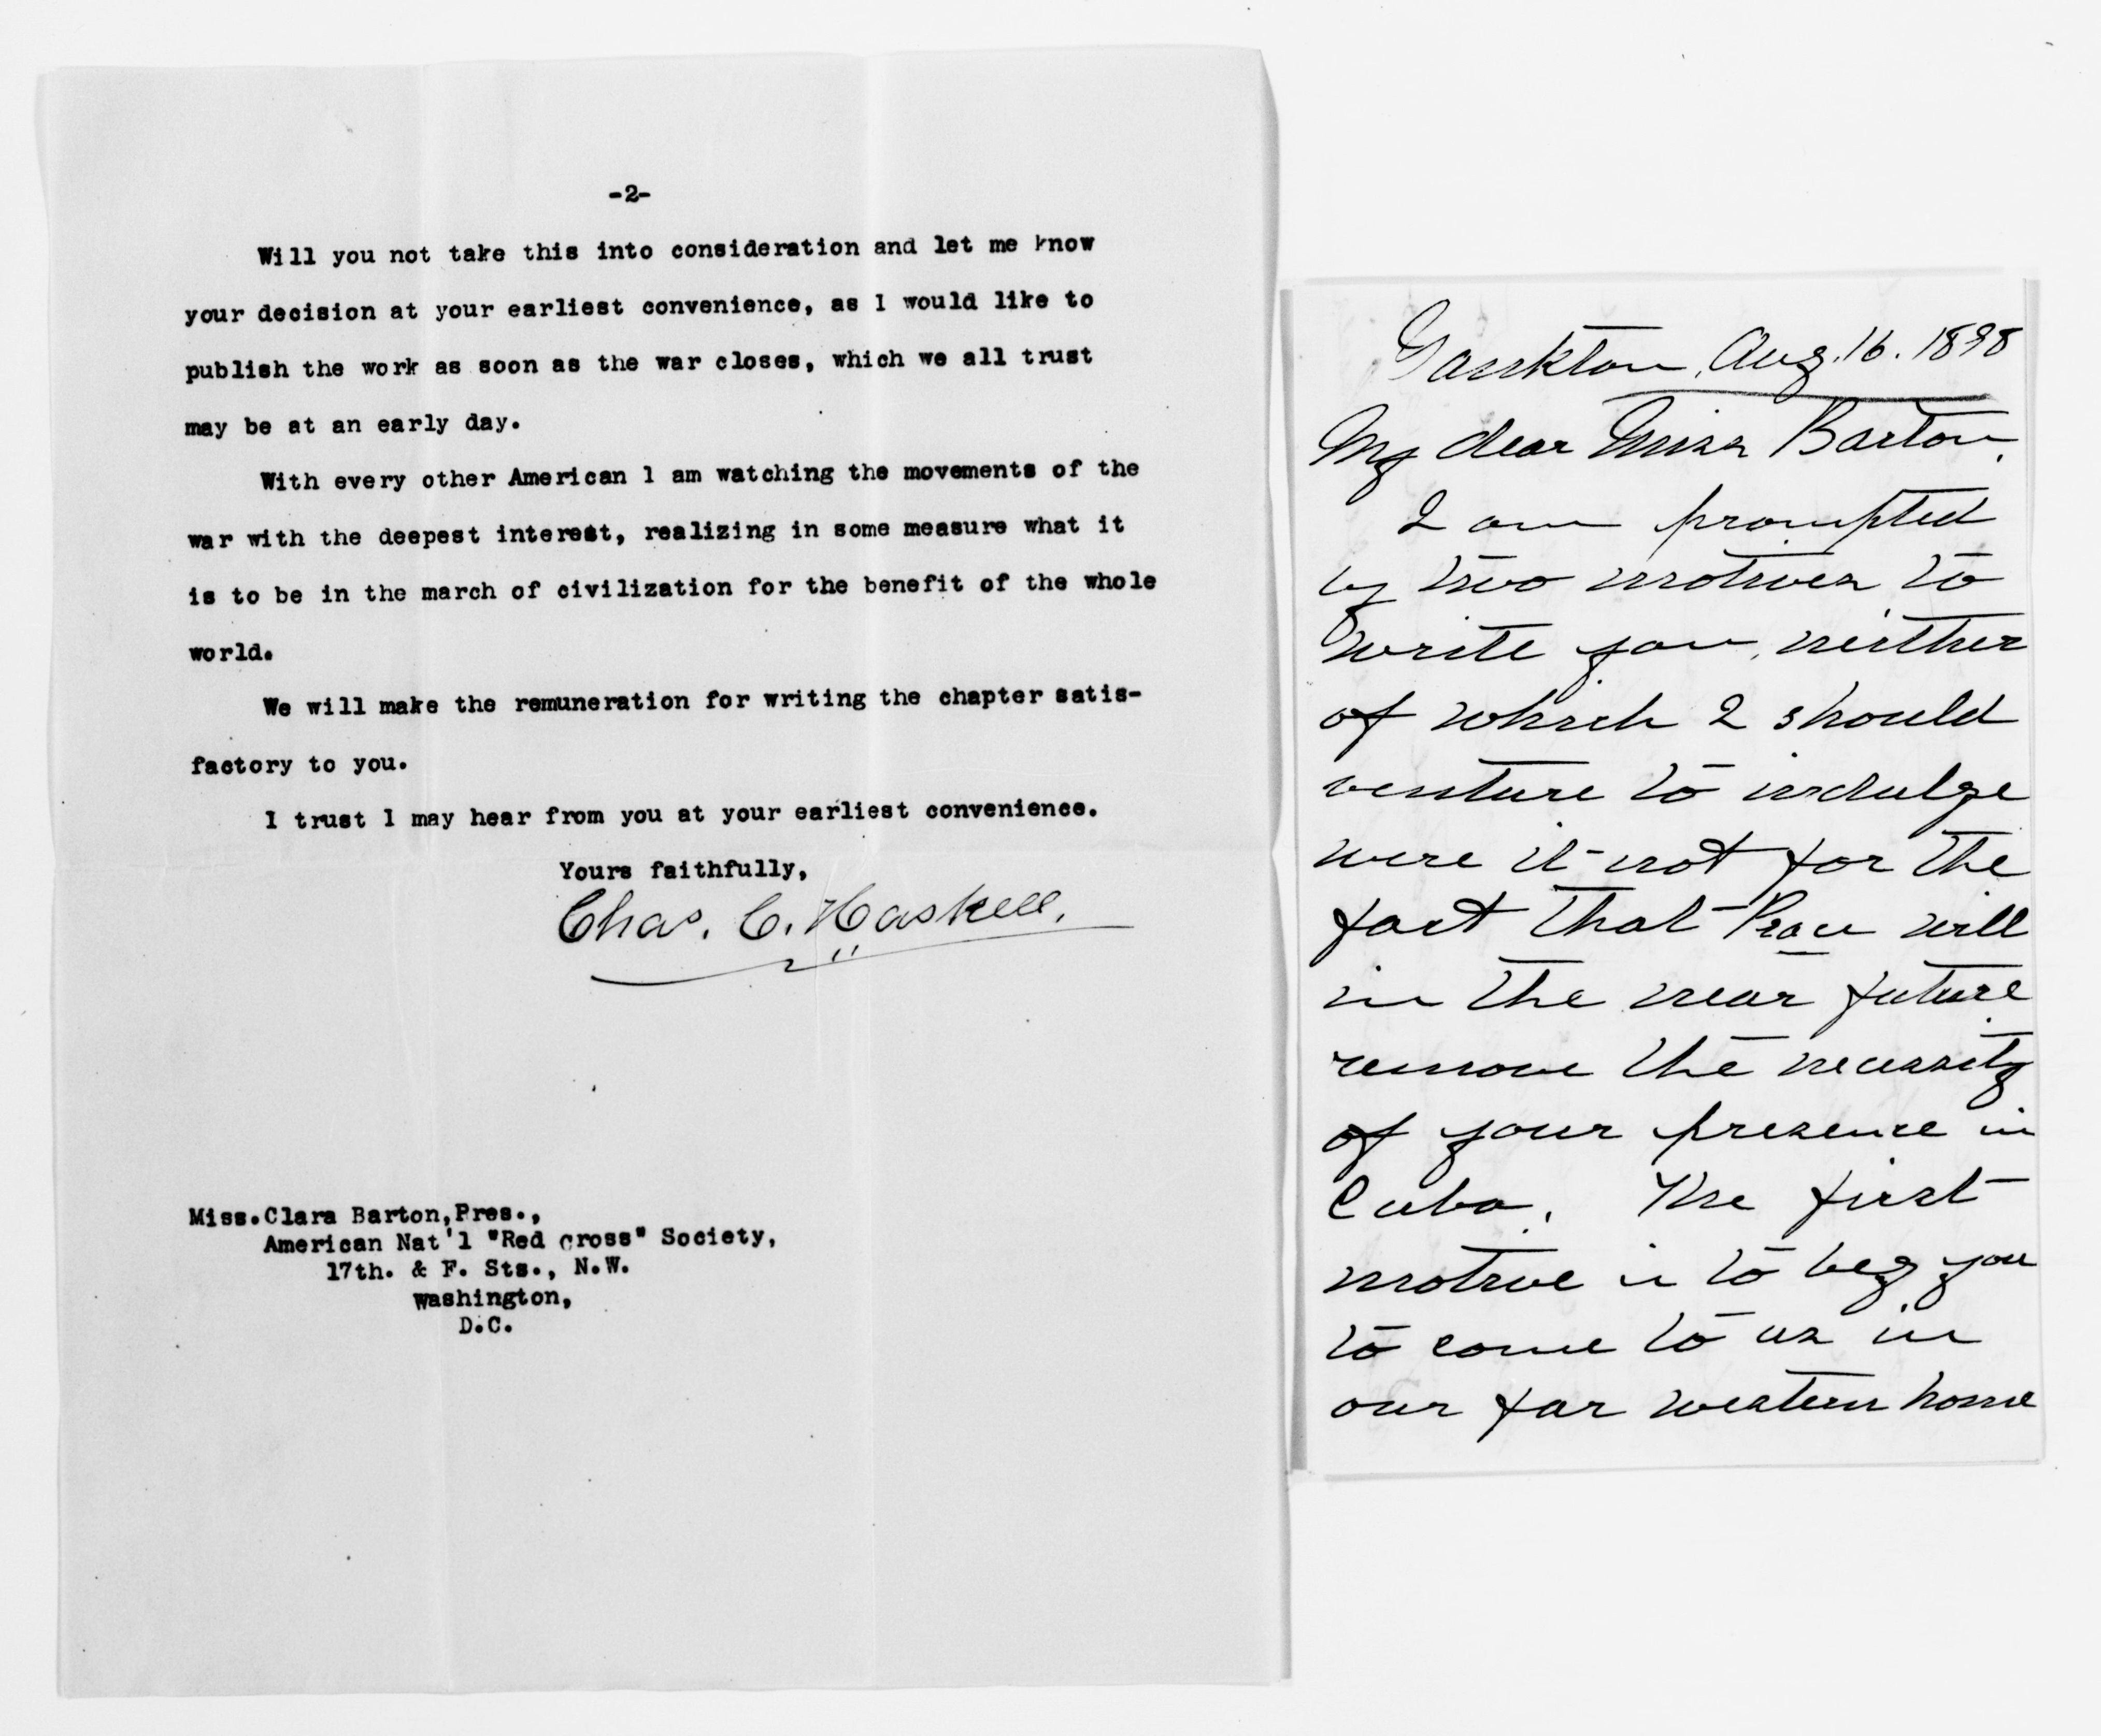 -2-
Will you not take this into consideration and let me know
your decision at your earliest convenience, as I would like to
publish the work as soon as the war closes, which we all trust
may be at an early day.
With every other American I am watching the movements of the
war with the deepest interest, realizing in some measure what it
is to be in the march of civilization for the benefit of the whole
world.
We will make the remuneration for writing the chapter satis-
factory to you.
I trust I may hear from you at your earliest convenience.
Yours faithfully,
Chas. C. Haskell.
Miss.Clara Barton,Pres.,
American Nat'l "Red Cross" Society,
17th. & F. Sts., N.W.
Washington,
D.C.
Yankton, Aug. 16. 1898
My dear Miss Barton,
I am prompted
by two motives to
write you, neither
of which I should
venture to indulge
were it not for the
fact that Peace will
in the near future
remove the necessity
of your presence in
Cuba. The first
motive is to beg you
to come to us in
our far western home